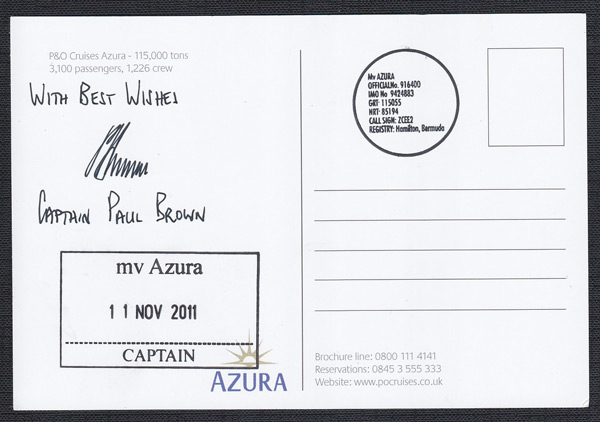 P&O Cruises Azura - 115,000 tons
3,100 passengers, 1,226 crew
WITH BEST WISHES
CAPTAIN PAUL BROWN
mv Azura
11 NOV 2011
CAPTAIN
AZURA
Mv AZURA
OFFICIALNo. 916400
IMO No 9424883
GRT: 115055
NRT: 85194
CALL SIGN: ZCEE2
REGISTRY: Hamilton, Bermuda
Brochure line: 0800 111 4141
Reservations: 0845 3 555 333
Website: www.pocruises.co.uk